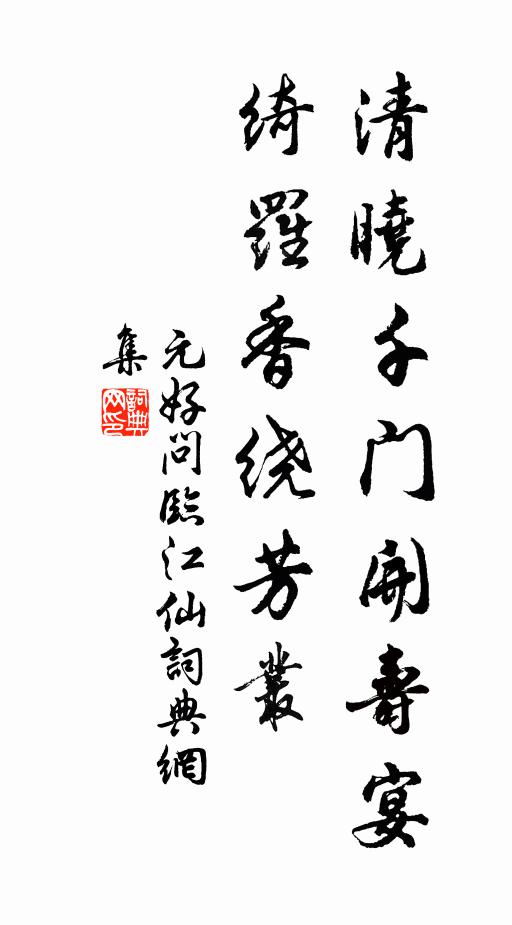 清曉千門開壽宴
綺羅香绕芳叢
元好问臨江仙詞典網
集
詞典
网印